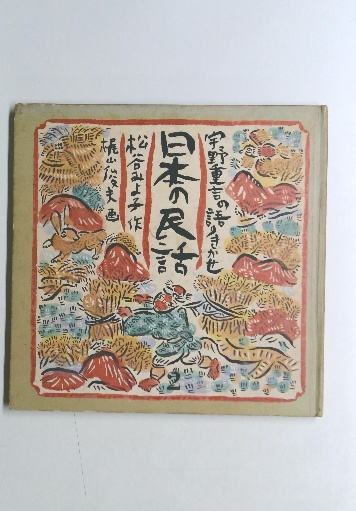 宇野重吉の語りきかせ
日本の民話
松谷みよ子 作
梶山俊夫 画
2